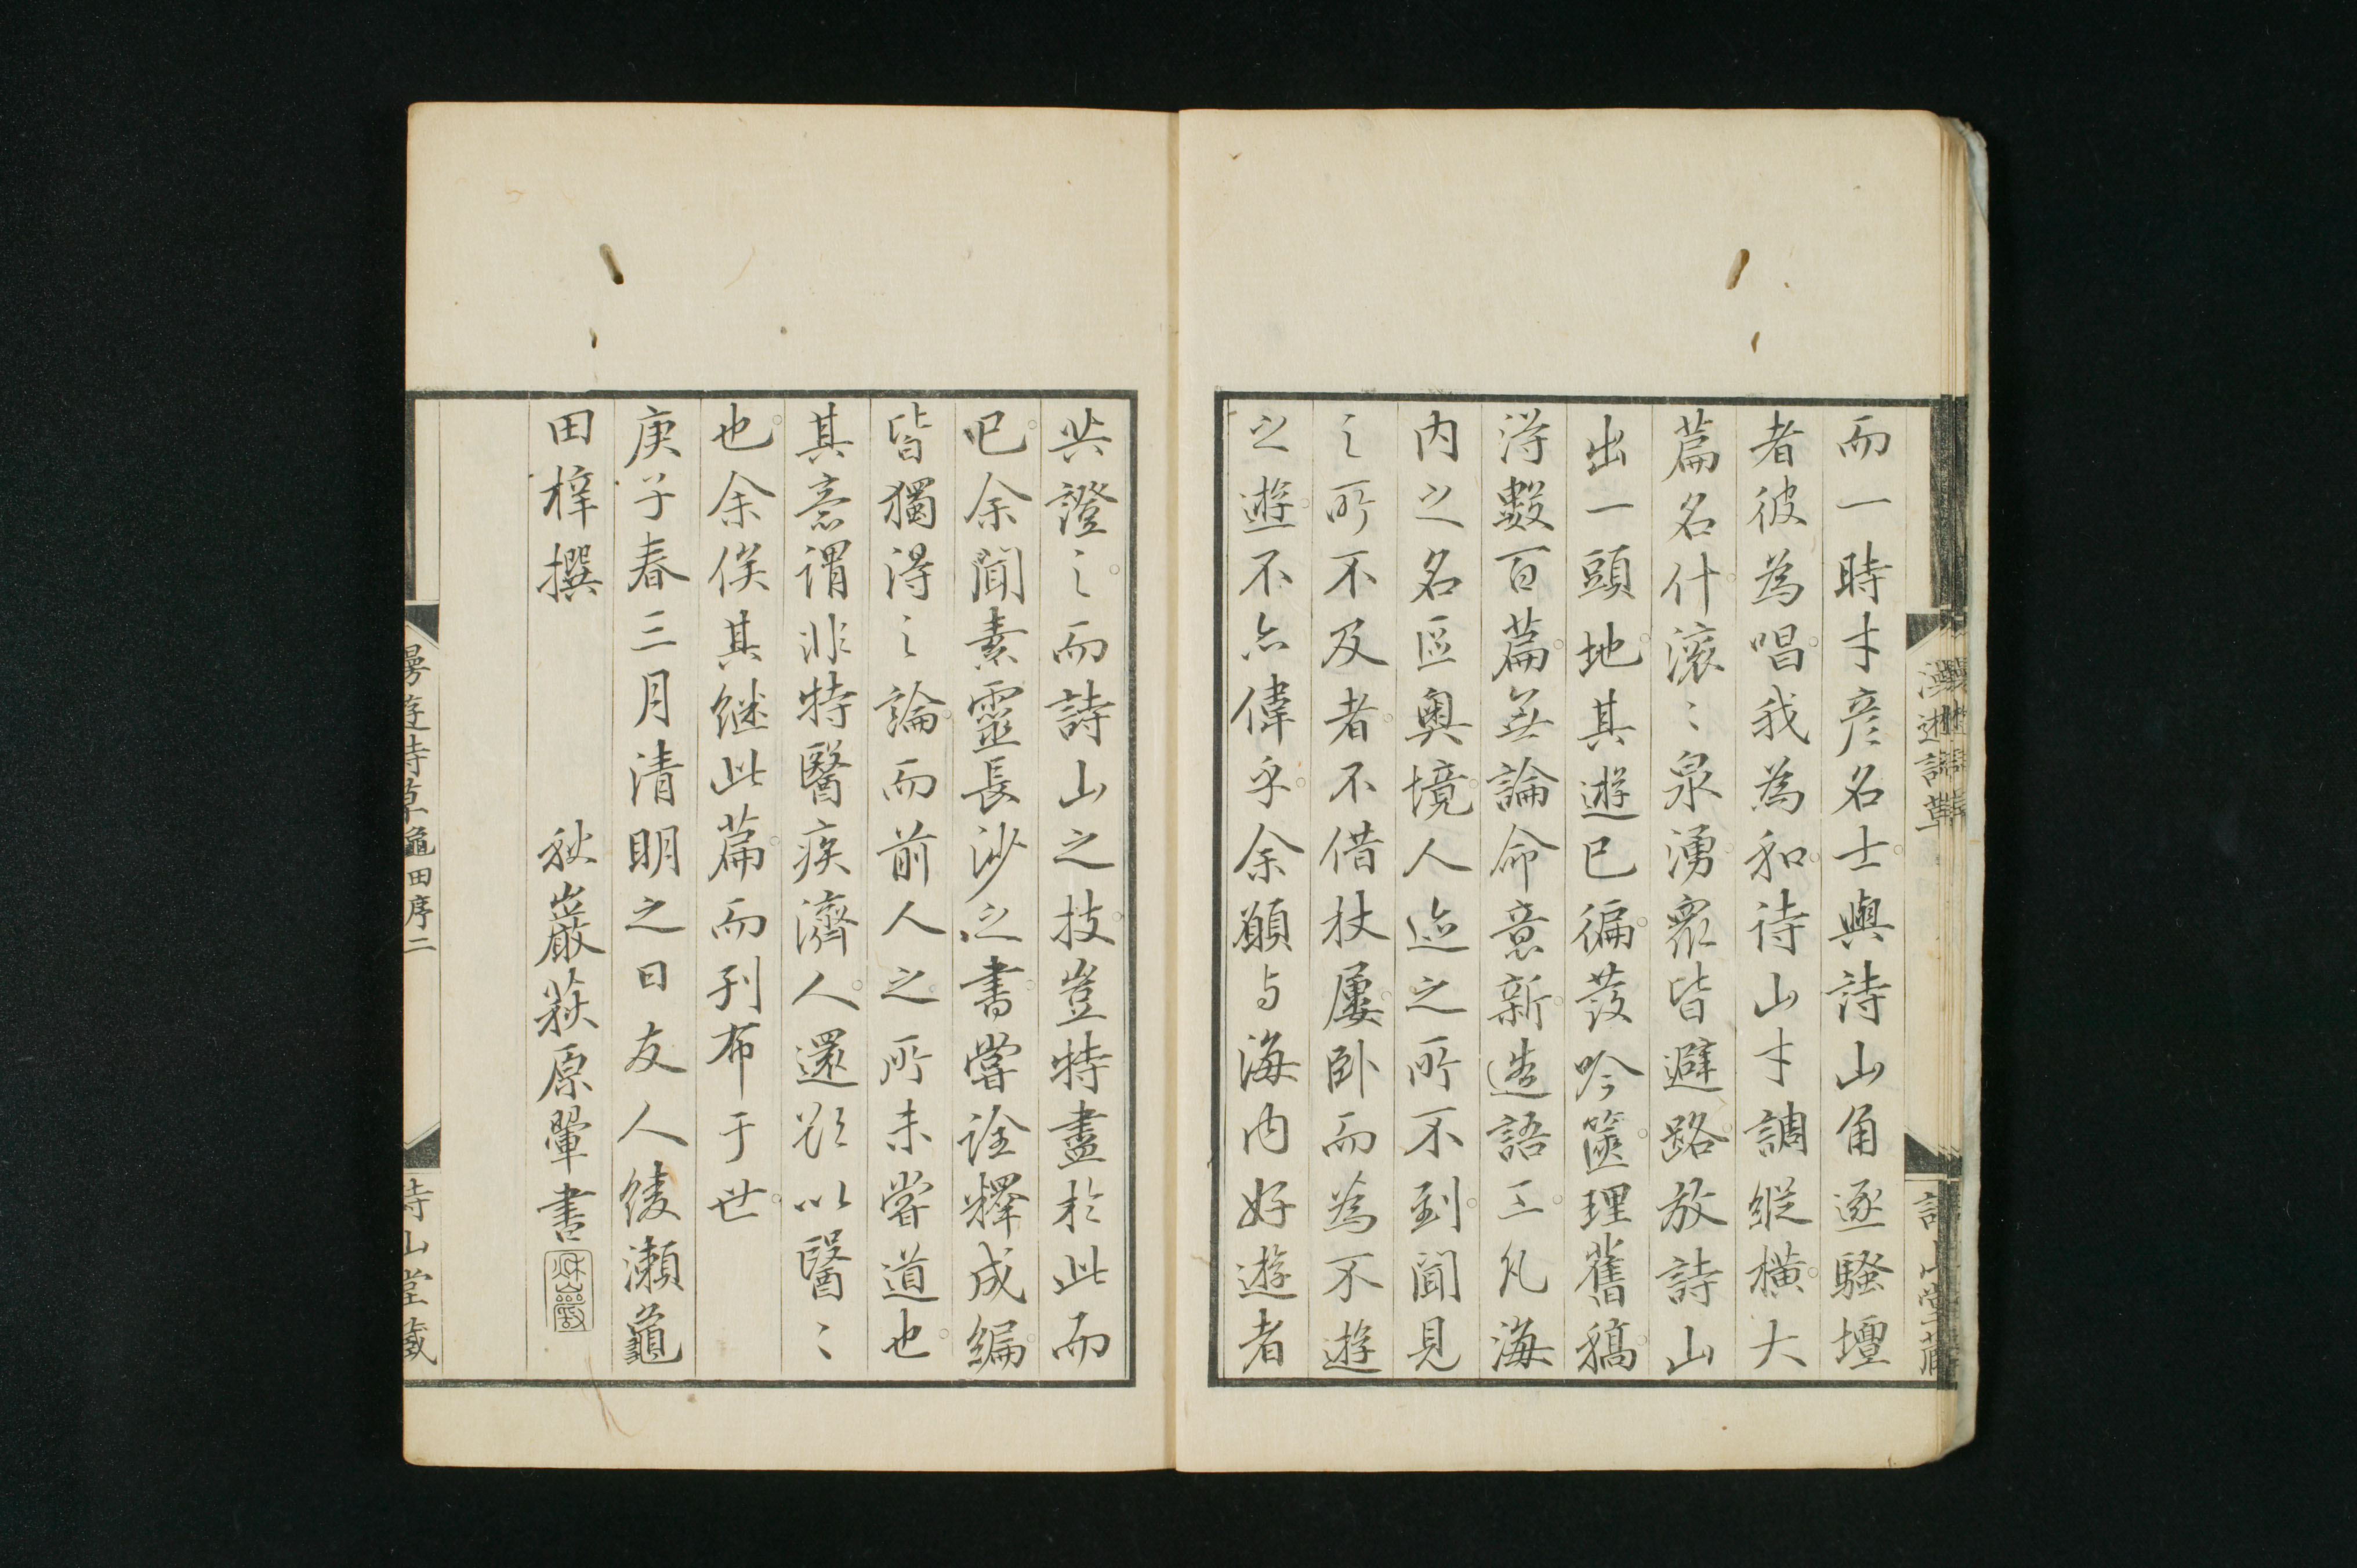 而一時才彦名士與詩山角逐騷壇
者彼為唱我為和詩山才調縱橫大
篇名什滚〻泉湧衆皆避路放詩山
出一頭地其遊已徧發吟篋理舊稿
淂數百篇無論命意新造語工凡海
内之名區奥境人迹之所不到聞見
之所不及者不借杖屦卧而為不遊
之遊不亦偉乎余願与海内好遊者
共證之而詩山之技豈特盡於此而
已余聞素靈長沙之書嘗詮釋成編
皆獨淂之論而前人之所未嘗道也
其意謂非特醫疾濟人還欲以醫〻
也余俟其継此篇而刊布于世
庚子春三月清明之日友人綾瀬龜
田梓撰
秋巖萩原翬書
漫遊詩草 龜田序 二
詩山堂藏